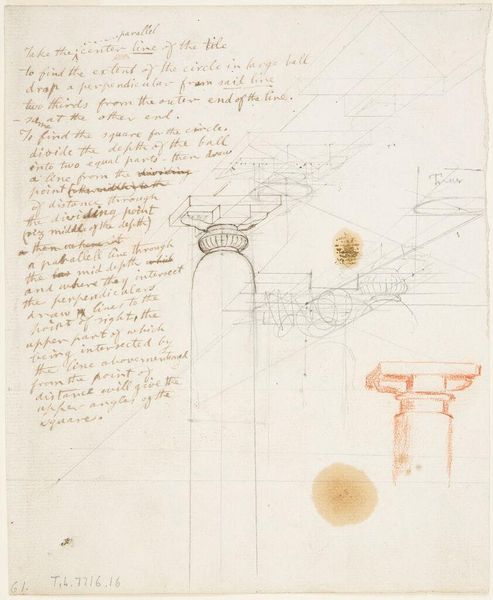 parallel
Take the center line of the tile
to find the extent of the circle in large ball
drop a perpendicular from said line
two thirds from the outer end of the line.
- same at the other end.
To find the square for the circle.
divide the depth of the ball
into two equal parts - then draw
a line from the dividing
point
of distance through
the dividing point
(viz middle of the depth)
then
a parallell line through
the mid depth which
and where they intersect
the perpendiculars
draw lines to the
point of sight, the
upper part of which
being intersected by
the line abovementiond
from the point of
distance will give the
upper angles of the
square.
61.
T.b.7716.16